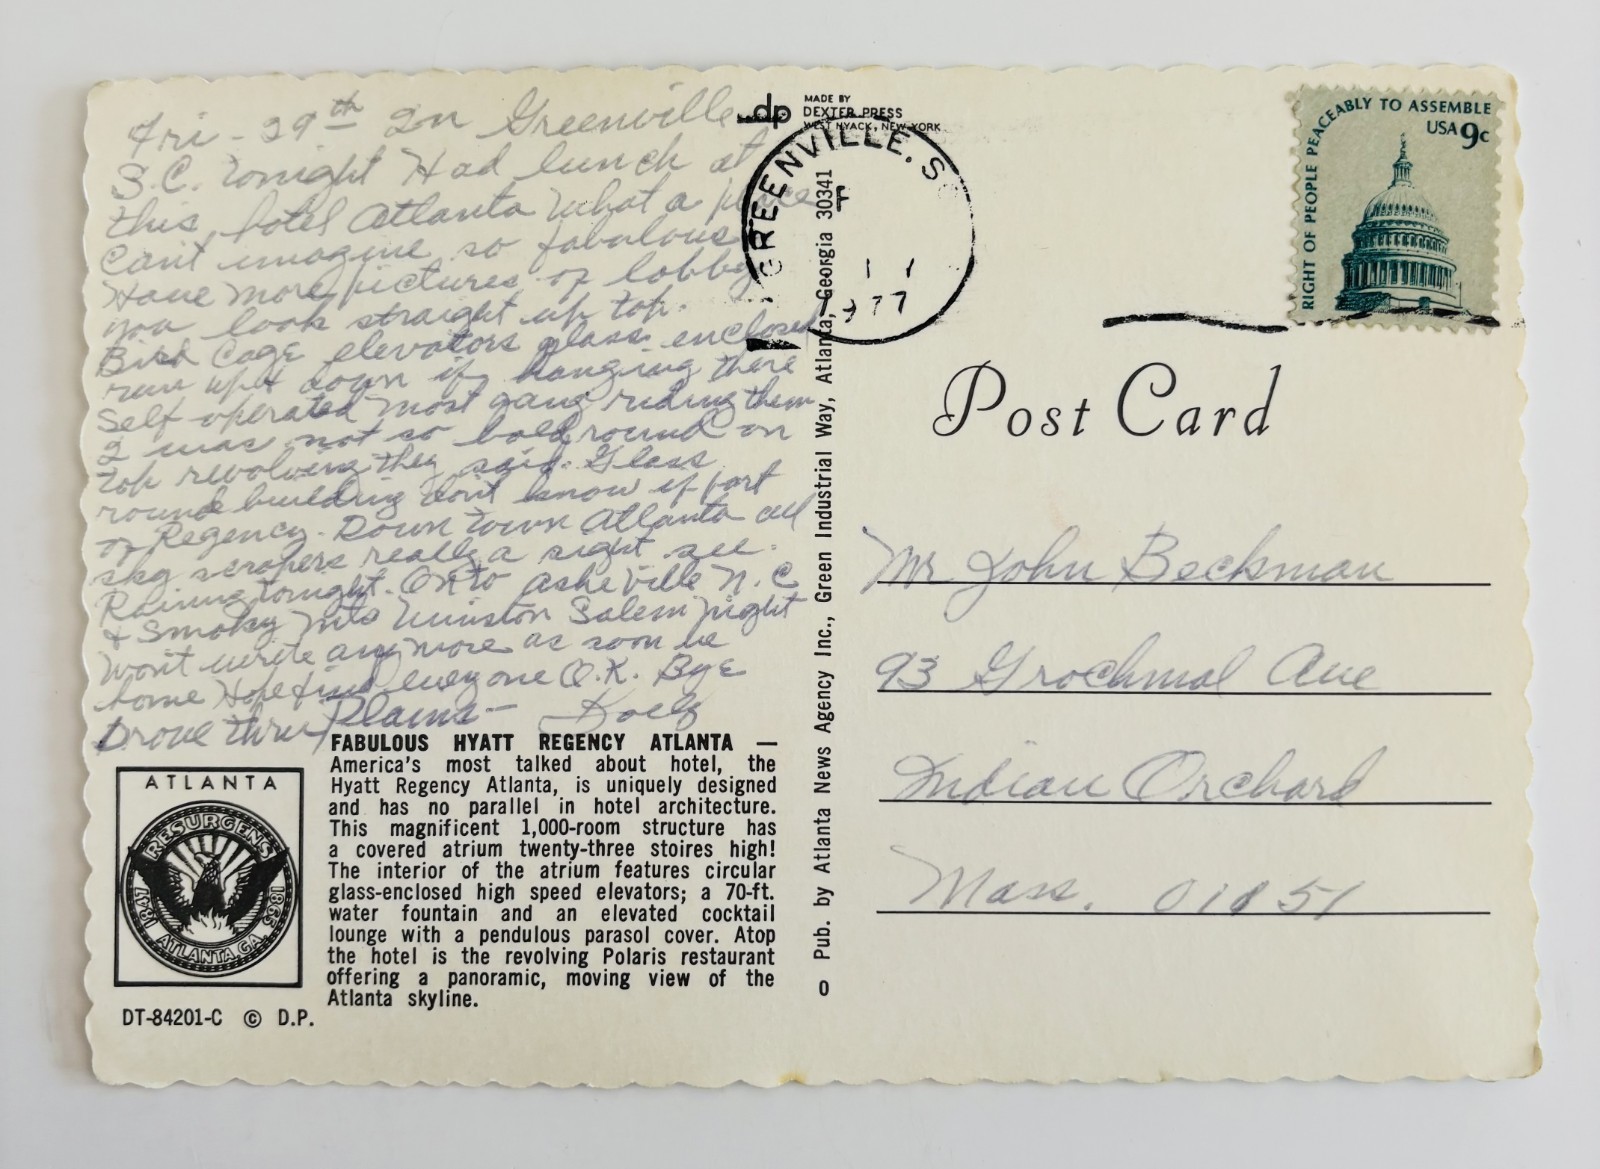 Fri - 29th In Greenville
S.C. tonight Had lunch at
this hotel Atlanta What a place
Can't imagine so fabulous
Have more pictures of lobby
you look straight up top.
Bird Cage elevators glass enclosed
run up & down if hanging there
Self operated most gang riding them
I was not so bold, round on
top revolving they said. Glass
round building don't know if part
of Regency. Down town Atlanta all
sky scrapers really a sight see.
Raining tonight. On to Asheville N.C
& Smoky Mts Winston Salem night
Won't write any more as soon be
home Hope find everyone O.K. Bye
Drove thru Plains -
FABULOUS HYATT REGENCY ATLANTA —
America's most talked about hotel, the
Hyatt Regency Atlanta, is uniquely designed
and has no parallel in hotel architecture.
This magnificent 1,000-room structure has
a covered atrium twenty-three stoires high!
The interior of the atrium features circular
glass-enclosed high speed elevators; a 70-ft.
water fountain and an elevated cocktail
lounge with a pendulous parasol cover. Atop
the hotel is the revolving Polaris restaurant
offering a panoramic, moving view of the
Atlanta skyline.
ATLANTA
RESURGENS
1847 1865
ATLANTA, GA.
DT-84201-C © D.P.
dp
MADE BY
DEXTER PRESS
WEST NYACK, NEW YORK
Pub. by Atlanta News Agency Inc., Green Industrial Way, Atlanta, Georgia 30341
0
GREENVILLE, S
1977
RIGHT OF PEOPLE PEACEABLY TO ASSEMBLE
USA 9c
Post Card
Mr John Beckman
93 Grochmal Ave
Indian Orchard
Mass. 01151